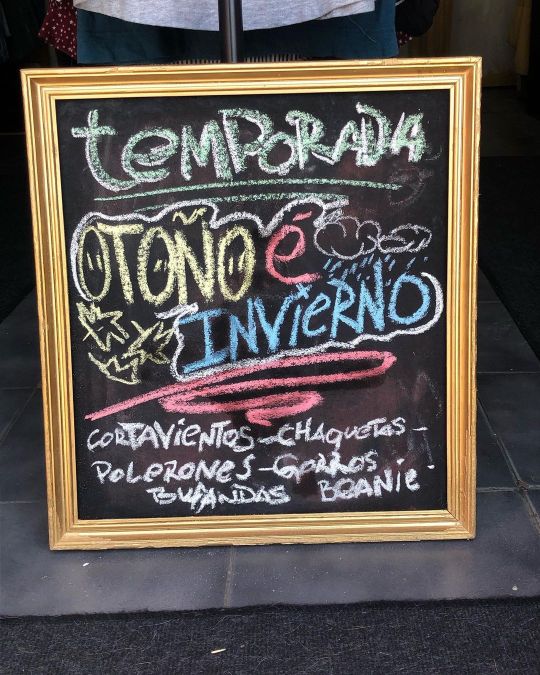 temporada
OTOÑO é
INVIERNO
CORTAVIENTOS - CHAQUETAS -
POLERONES - GORROS -
BUFANDAS BEANIE